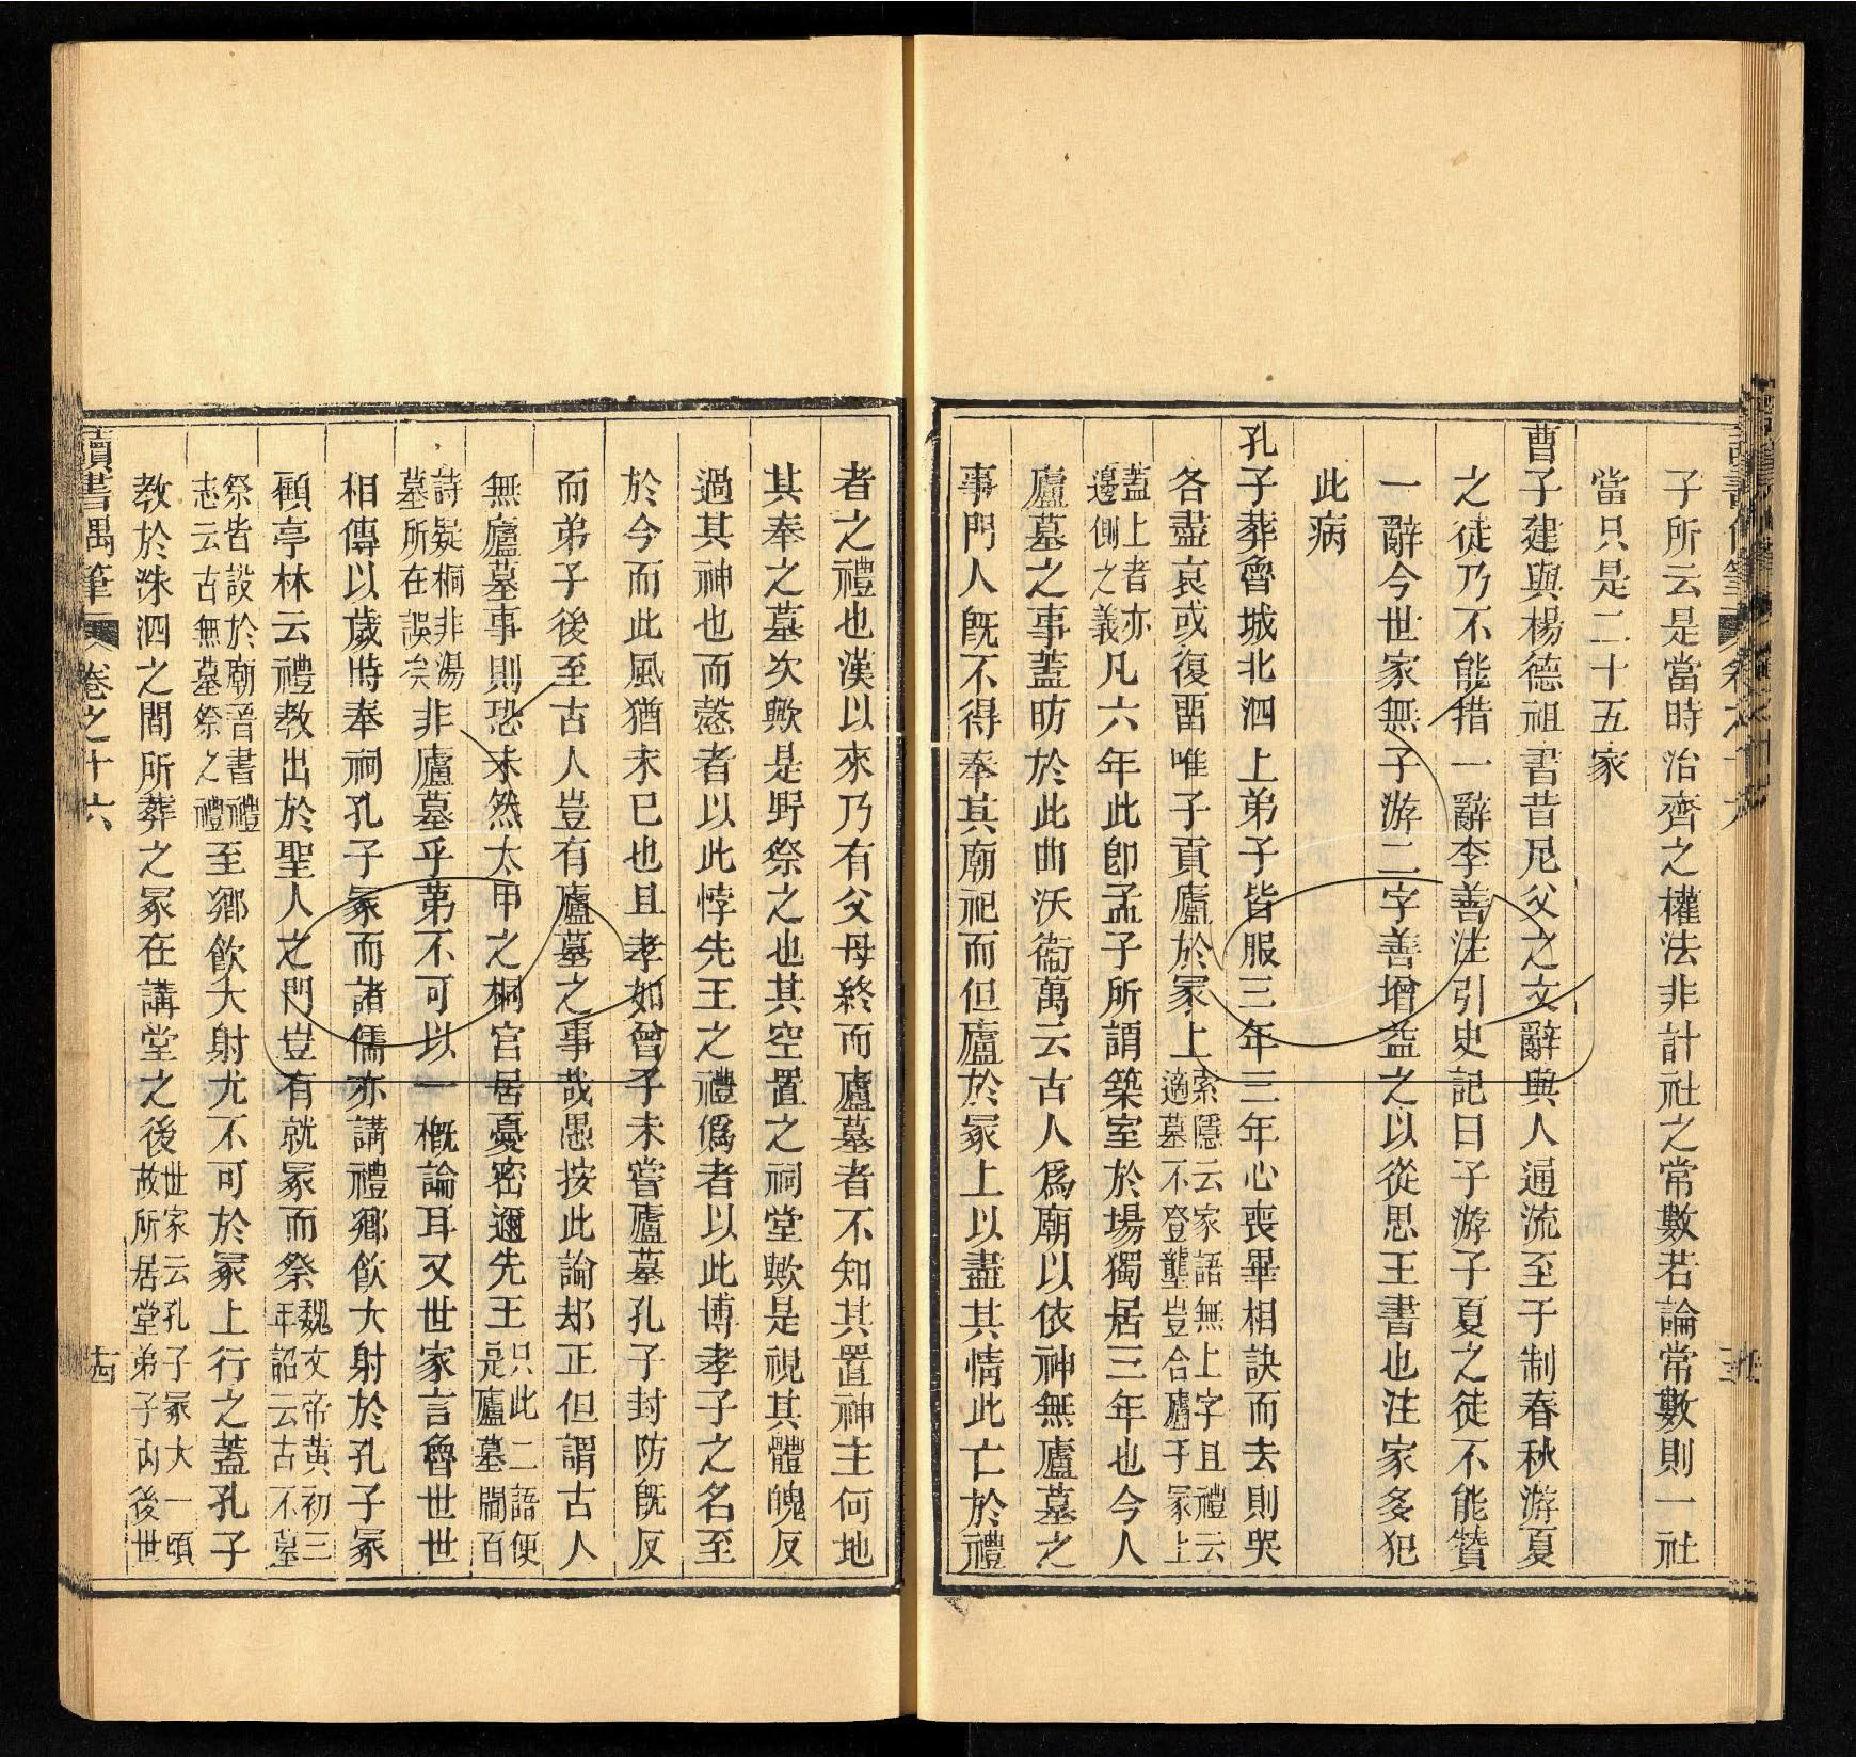 子所云是當時治齊之權法非計社之常數若論常數則一社
當只是二十五家
曹子建與楊德祖書昔尼父之文辭與人通流至于制春秋游夏
之徒乃不能措一辭李善注引史記曰子游子夏之徒不能贊
一辭今世家無子游二字善增益之以從思王書也注家多犯
此病
孔子葬魯城北泗上弟子皆服三年三年心喪畢相訣而去則哭
各盡哀或復畱唯子貢廬於冢上索隱云家語無上字且禮云適墓不登壟豈合廬于冢上
蓋上者亦邊側之義凡六年此卽孟子所謂築室於場獨居三年也今人
廬墓之事蓋昉於此曲沃衞萬云古人爲廟以依神無廬墓之
事門人旣不得奉其廟祀而但廬於冢上以盡其情此亡於禮
者之禮也漢以來乃有父母終而廬墓者不知其置神主何地
其奉之墓次歟是野祭之也其空置之祠堂歟是視其體魄反
過其神也而愨者以此悖先王之禮僞者以此博孝子之名至
於今而此風猶未已也且孝如曾子未嘗廬墓孔子封防旣反
而弟子後至古人豈有廬墓之事哉愚按此論却正但謂古人
無廬墓事則恐未然太甲之桐宮居憂密邇先王只此二語便是廬墓閻百
詩疑桐非湯墓所在誤矣非廬墓乎第不可以一槪論耳又世家言魯世世
相傳以歲時奉祠孔子冢而諸儒亦講禮鄉飮大射於孔子冢
顧亭林云禮教出於聖人之門豈有就冢而祭魏文帝黃初三年詔云古不墓
祭皆設於廟晉書禮志云古無墓祭之禮至鄉飮大射尤不可於冢上行之蓋孔子
教於洙泗之間所葬之冢在講堂之後世家云孔子冢大一頃故所居堂弟子內後世
讀書偶筆 卷之十六 十四